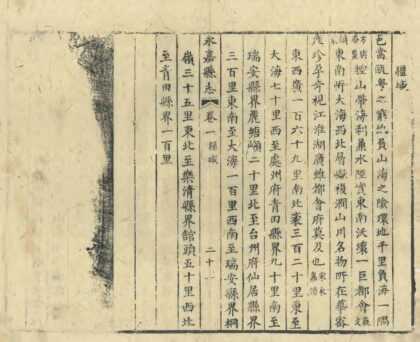 疆域
邑當甌粤之窮地負山海之險環地千里負海一隅
控山帶海利兼水陸實東南沃壤一巨都會
東南斫大海西北層巘複澗山川名物所在
產珍孕奇視江淮湖廣雖都會府莫及也
東西廣一百六十九里南北袤三百二十里東至
大海七十里西至處州府青田縣界九十里南至
瑞安縣界鹿塘嶺二十里北至台州府仙居縣界
三百里東南至大海一百里西南至瑞安縣界桐
永嘉縣志 卷一 疆域 二十一
嶺三十五里東北至樂清縣界館頭五十里西北
至青田縣界一百里